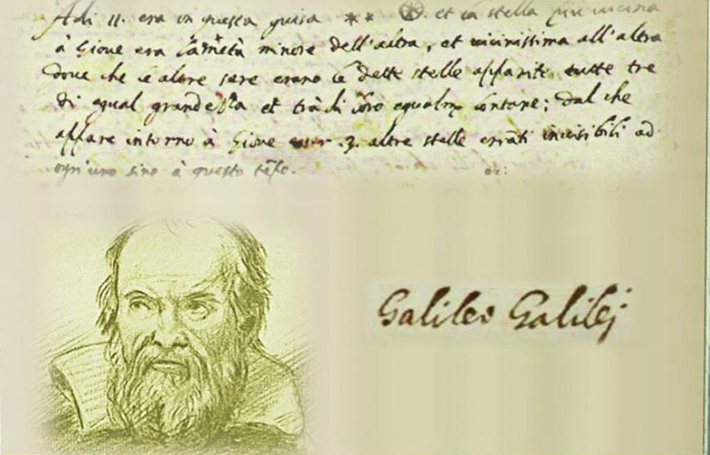 Adi 11. era in questa guisa ** ⊛. et la stella più vicina
à Giove era la metà minore dell'altra, et vicinissima all'altra
dove che le altre sere erano le dette stelle apparite tutte tre
di egual grandezza et trà di loro egualm lontane; dal che
appare intorno à Giove esser .3. altre stelle erranti invisibili ad
ogn'uno sino à questo tempo.
Galileo Galilej